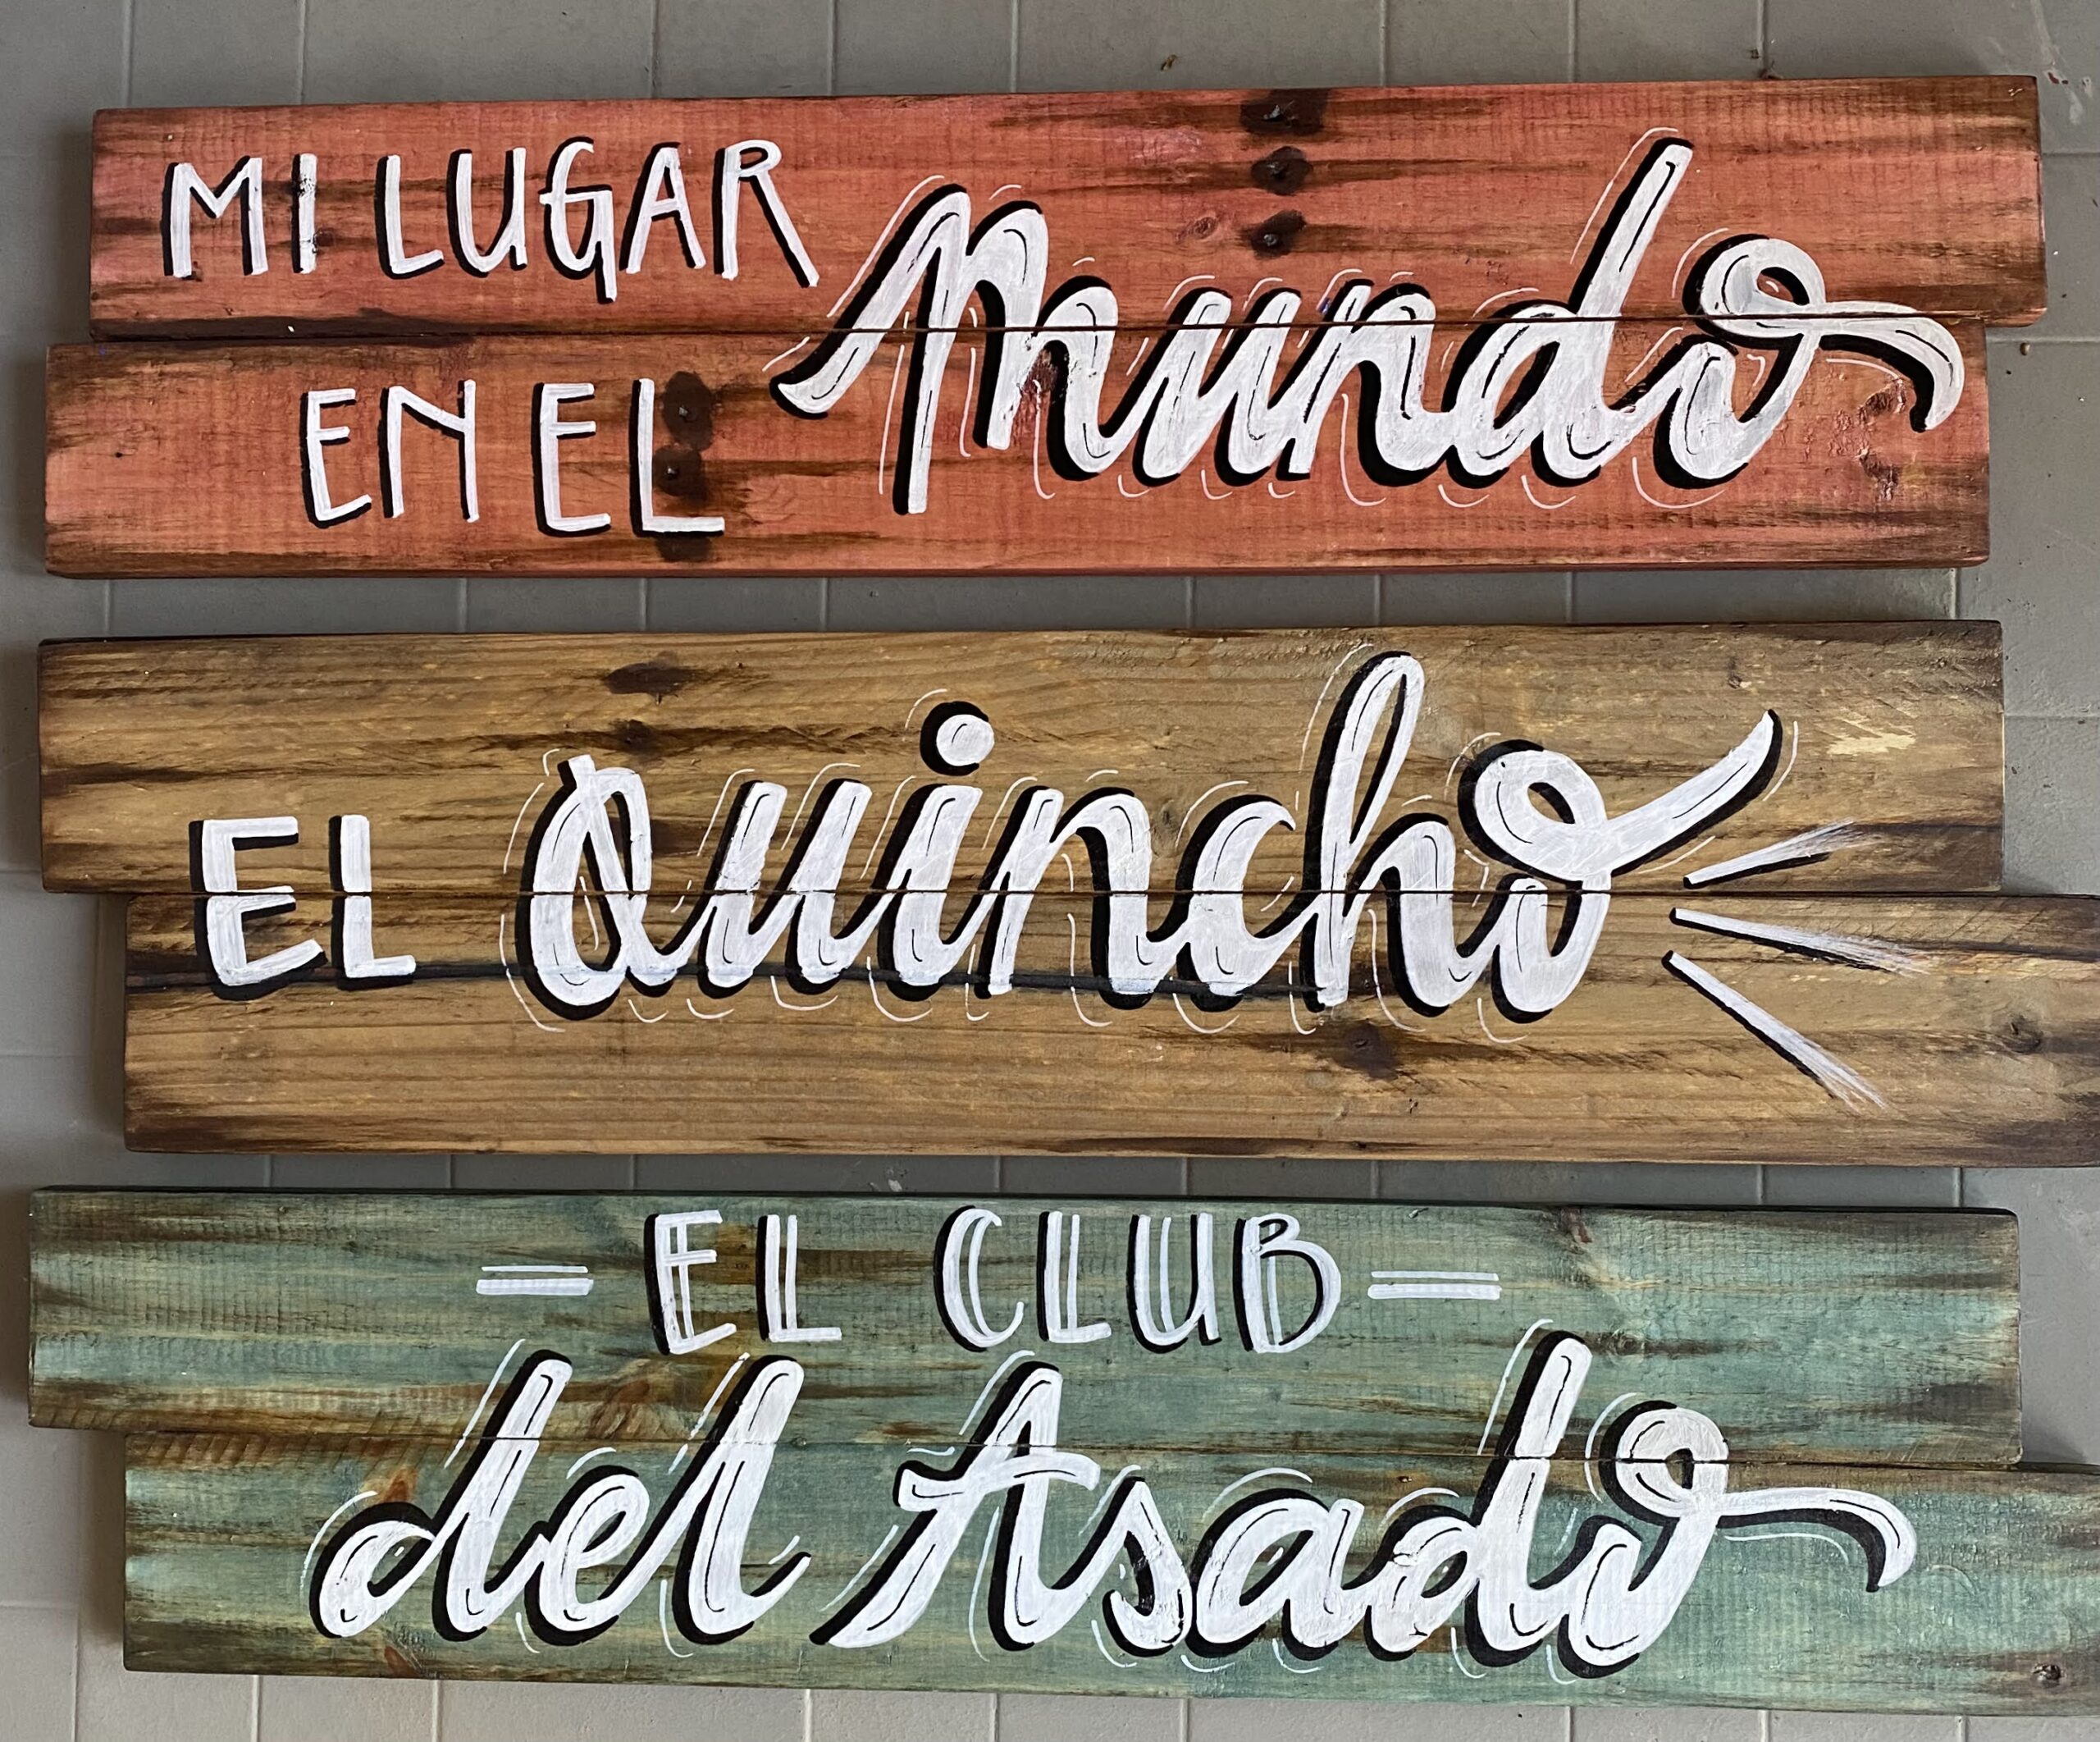 MI LUGAR
EN EL Mundo
EL Quincho
EL CLUB
del Asado